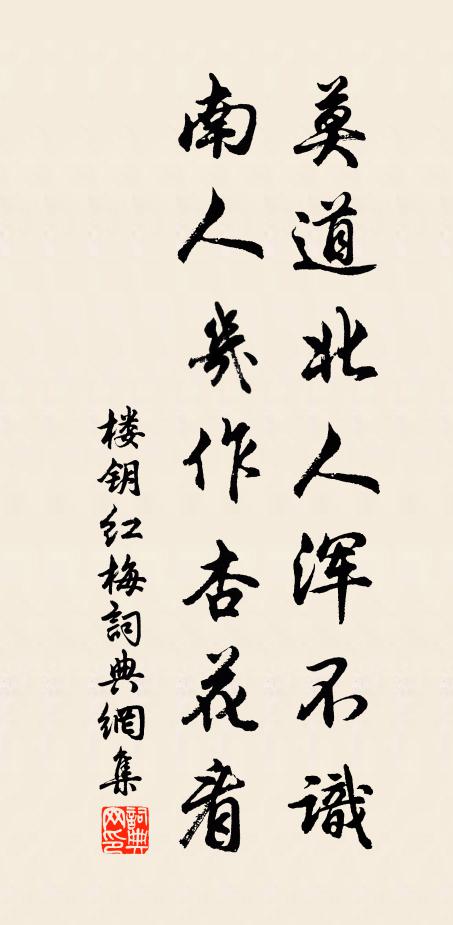 莫道北人浑不識
南人幾作杏花看
楼钥红梅詞典網集
詞典網印